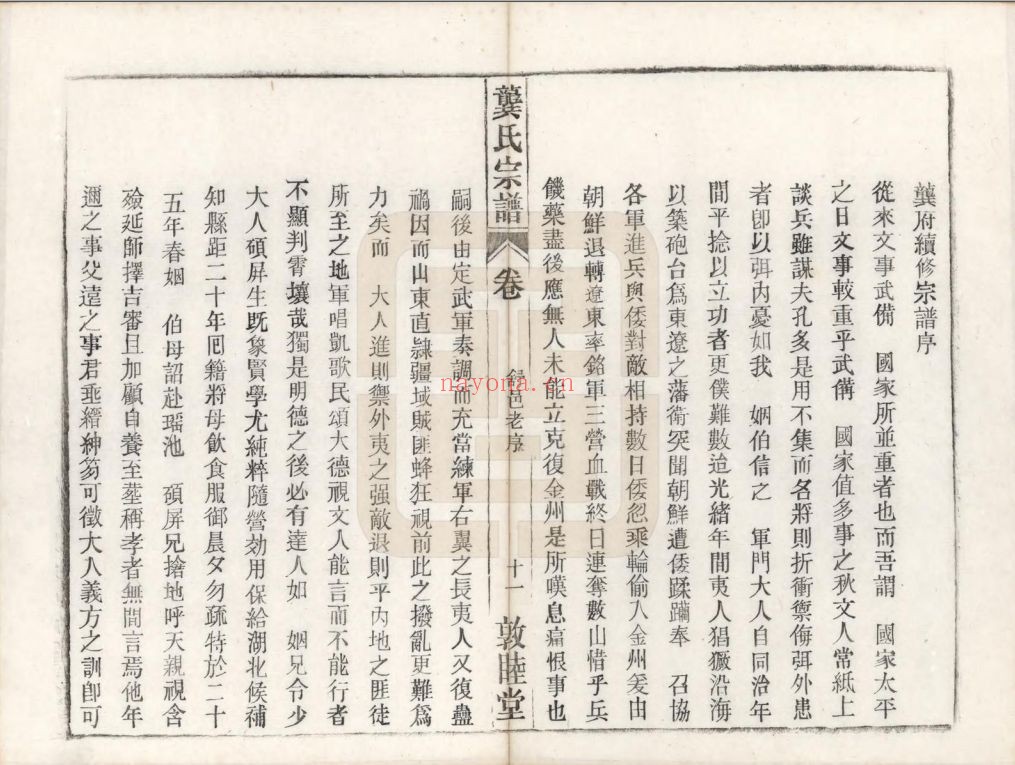 龔府續修宗譜序
從來文事武備　國家所並重者也而吾謂　國家太平
之日文事較重乎武備　國家值多事之秋文人常紙上
談兵雖謀夫孔多是用不集而各將則折衝禦侮弭外患
者卽以弭內憂如我　姻伯信之　軍門大人自同治年
間平捻以立功者更僕難數迨光緒年間夷人猖獗沿海
以築砲台爲東遼之藩衛突聞朝鮮遭倭蹂躪奉　召協
各軍進兵與倭對敵相持數日倭忽乘輪偷入金州爰由
朝鮮退轉遼東率銘軍三營血戰終日連奪數山惜乎兵
饑藥盡後應無人未能立克復金州是所嘆息痛恨事也
龔氏宗譜　卷　邑老序　十一　敦睦堂
嗣後由定武軍奏調而充當練軍右翼之長夷人又復蠱
禍因而山東直隸疆域賊匪蜂狂視前此之撥亂更難爲
力矣而　大人進則禦外夷之强敵退則平內地之匪徒
所至之地軍唱凱歌民頌大德視文人能言而不能行者
不顯判霄壤哉獨是明德之後必有達人如　姻兄令少
大人碩屏生旣象賢學尤純粹隨營効用保給湖北候補
知縣距二十年囘籍將母飲食服御晨夕勿疏特於二十
五年春姻　伯母詔赴瑤池　碩屏兄搶地呼天親視含
殮延師擇吉審且加顧自養至葬稱孝者無間言焉他年
邇之事父遠之事君垂縉紳笏可徵大人義方之訓卽可
nayona.cn